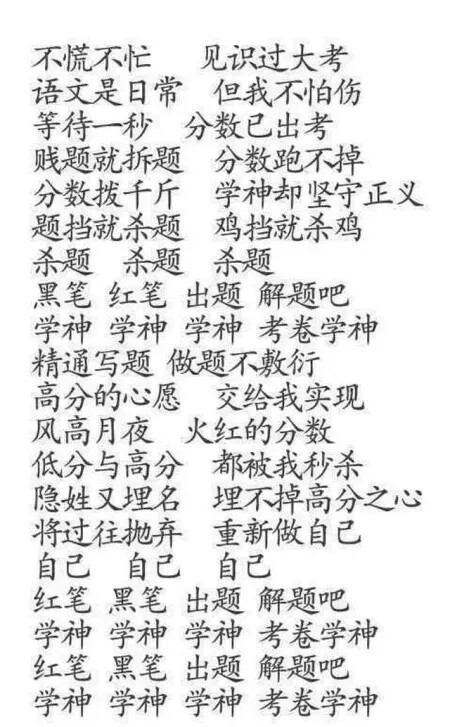 不慌不忙 见识过大考
语文是日常 但我不怕伤
等待一秒 分数已出考
贱题就拆题 分数跑不掉
分数拨千斤 学神却坚守正义
题挡就杀题 鸡挡就杀鸡
杀题 杀题 杀题
黑笔 红笔 出题 解题吧
学神 学神 学神 考卷学神
精通写题 做题不敷衍
高分的心愿 交给我实现
风高月夜 火红的分数
低分与高分 都被我秒杀
隐姓又埋名 埋不掉高分之心
将过往抛弃 重新做自己
自己 自己 自己
红笔 黑笔 出题 解题吧
学神 学神 学神 考卷学神
红笔 黑笔 出题 解题吧
学神 学神 学神 考卷学神